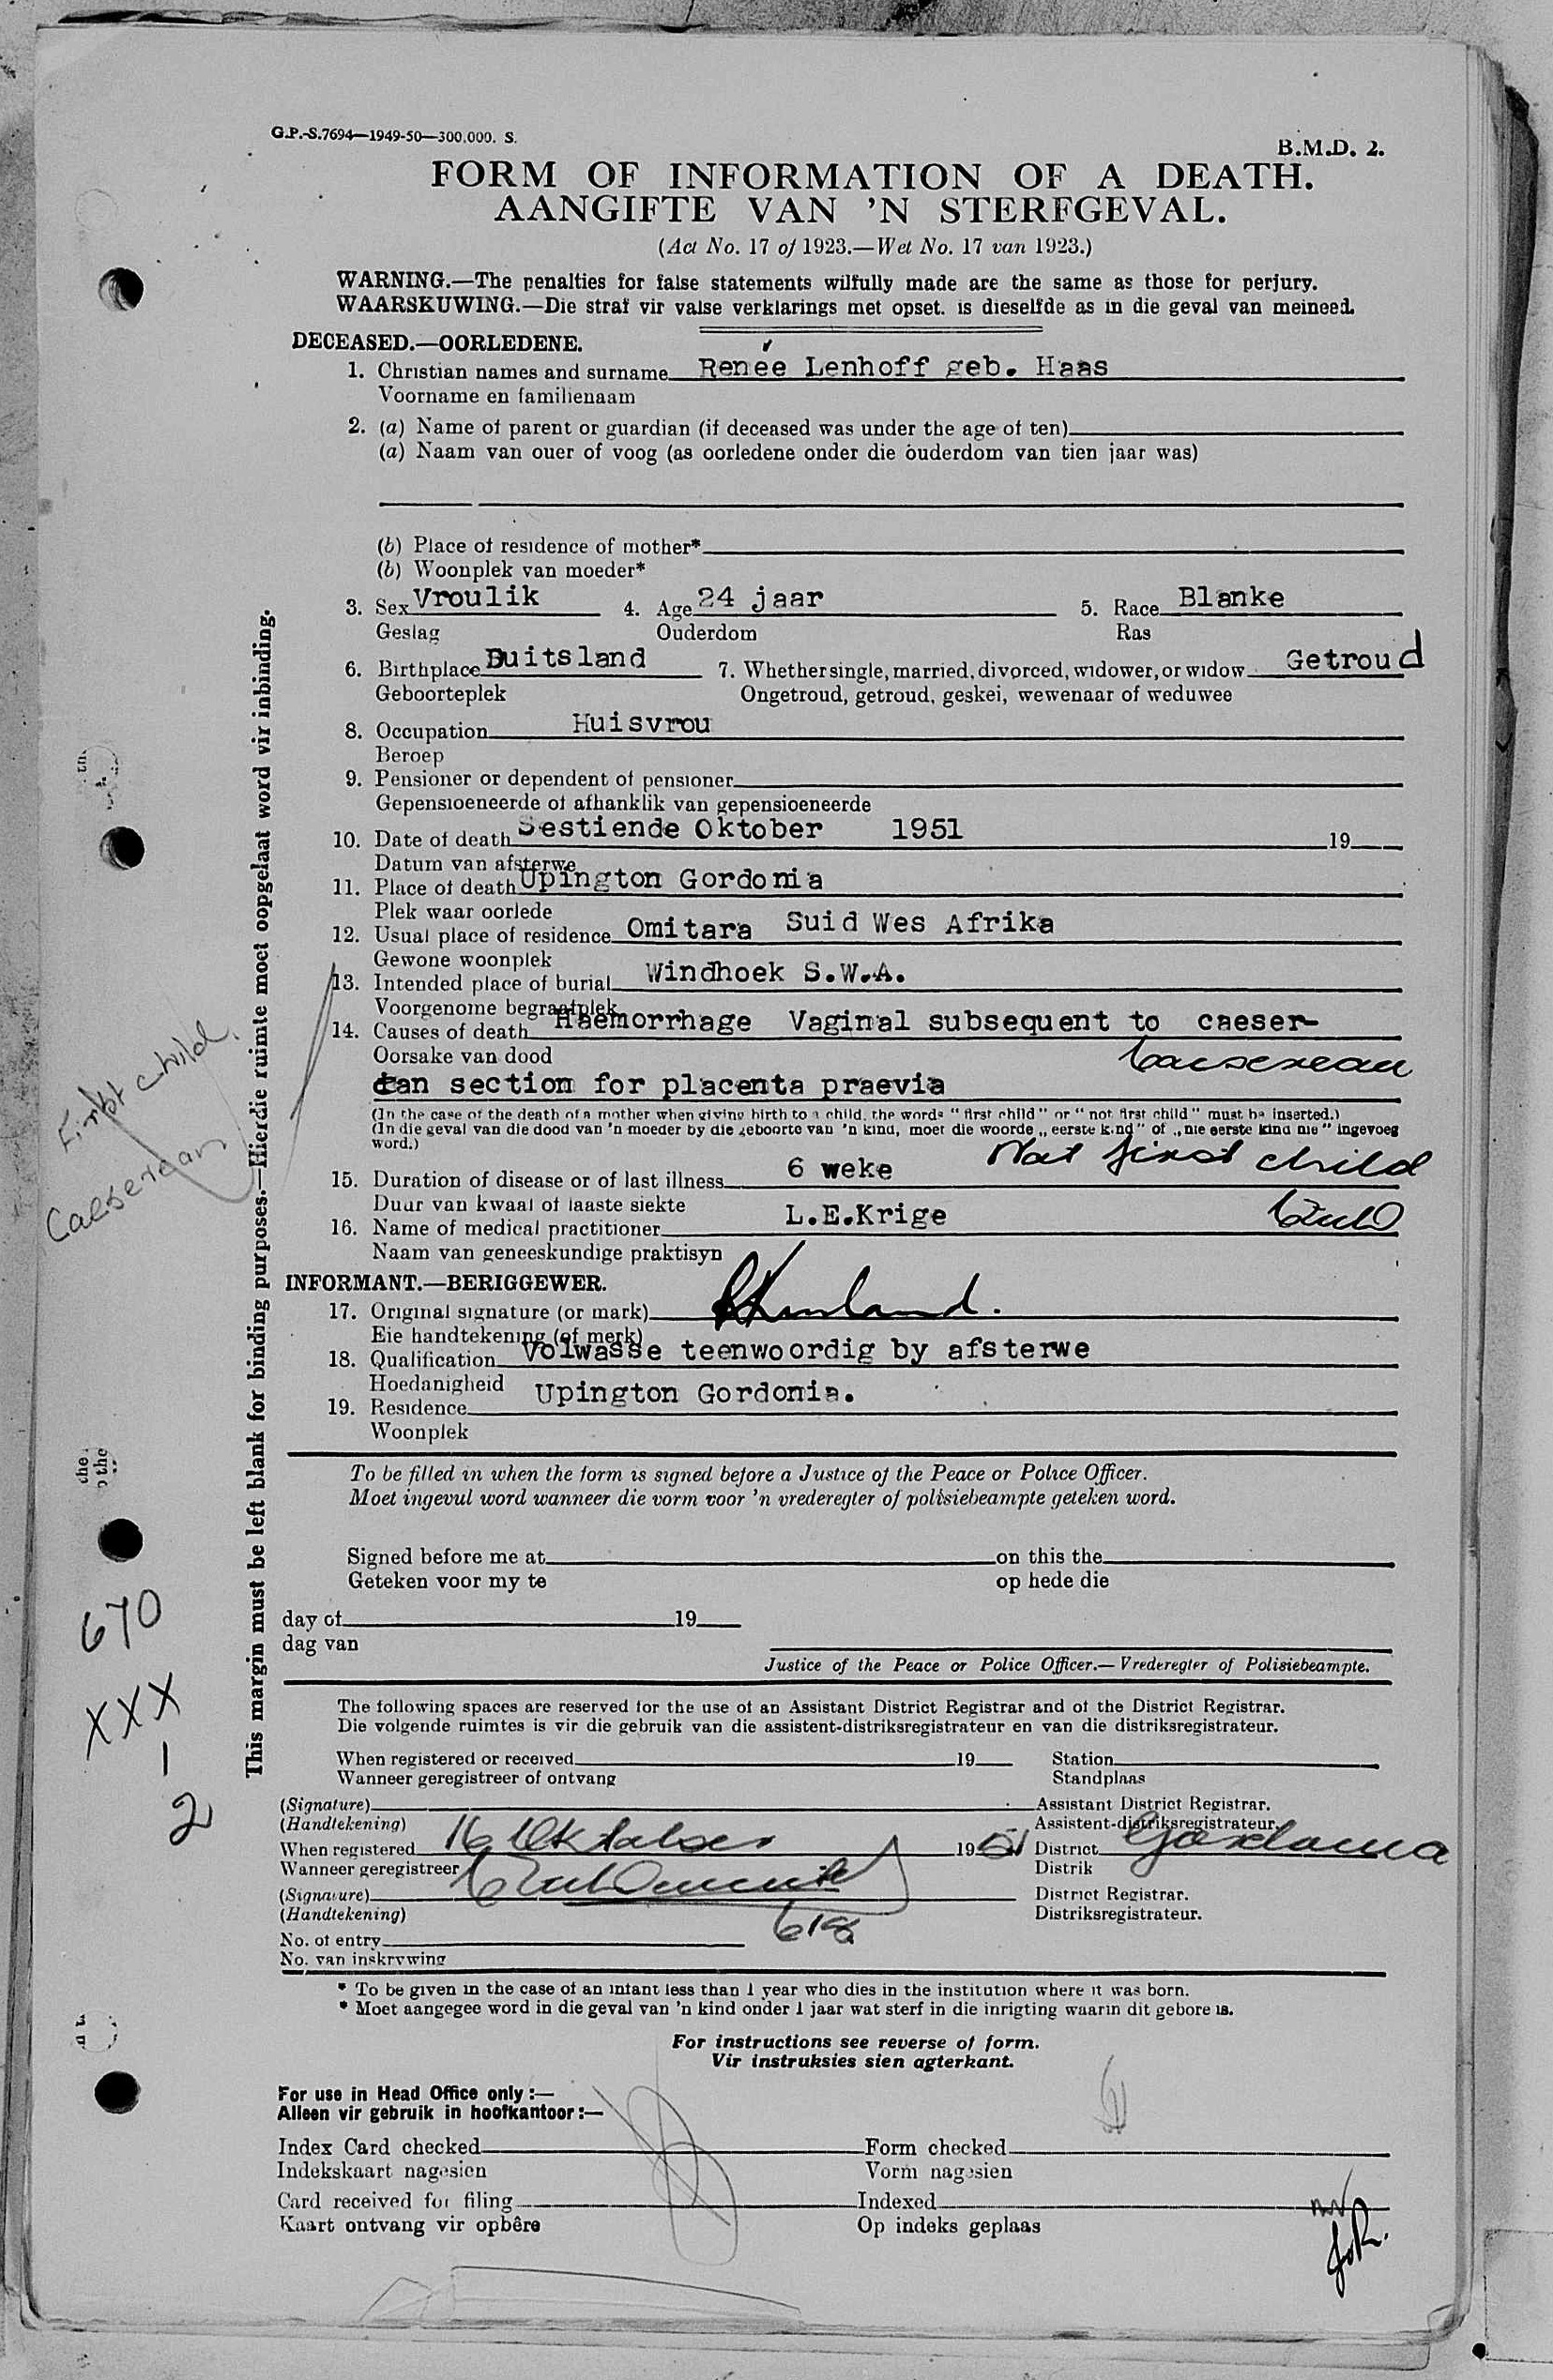 G.P.-S.7694—1949-50—300.000. S.
B.M.D. 2.
FORM OF INFORMATION OF A DEATH.
AANGIFTE VAN 'N STERFGEVAL.
(Act No. 17 of 1923.—Wet No. 17 van 1923.)
WARNING.—The penalties for false statements wilfully made are the same as those for perjury.
WAARSKUWING.—Die straf vir valse verklarings met opset. is dieselfde as in die geval van meineed.
DECEASED.—OORLEDENE.
1. Christian names and surname Renée Lenhoff geb. Haas
Voorname en familienaam
2. (a) Name of parent or guardian (if deceased was under the age of ten)
(a) Naam van ouer of voog (as oorledene onder die ouderdom van tien jaar was)
(b) Place of residence of mother*
(b) Woonplek van moeder*
3. Sex Vroulik 4. Age 24 jaar 5. Race Blanke
Geslag Ouderdom Ras
6. Birthplace Duitsland 7. Whether single, married, divorced, widower, or widow Getroud
Geboorteplek Ongetroud, getroud, geskei, wewenaar of weduwee
8. Occupation Huisvrou
Beroep
9. Pensioner or dependent of pensioner
Gepensioeneerde of afhanklik van gepensioeneerde
10. Date of death Sestiende Oktober 1951 19
Datum van afsterwe
11. Place of death Upington Gordonia
Plek waar oorlede
12. Usual place of residence Omitara Suid Wes Afrika
Gewone woonplek
13. Intended place of burial Windhoek S.W.A.
Voorgenome begraafplek
14. Causes of death Haemorrhage Vaginal subsequent to caeser-
Oorsake van dood Caesereau
ian section for placenta praevia
(In the case of the death of a mother when giving birth to a child, the words "first child" or "not first child" must be inserted.)
(In die geval van die dood van 'n moeder by die geboorte van 'n kind, moet die woorde „eerste kind" of „nie eerste kind nie" ingevoeg
word.)
Not first child
15. Duration of disease or of last illness 6 weke
Duur van kwaal of laaste siekte
16. Name of medical practitioner L.E.Krige
Naam van geneeskundige praktisyn
INFORMANT.—BERIGGEWER.
17. Original signature (or mark)
Eie handtekening (of merk)
18. Qualification Volwasse teenwoordig by afsterwe
Hoedanigheid
19. Residence Upington Gordonia.
Woonplek
To be filled in when the form is signed before a Justice of the Peace or Police Officer.
Moet ingevul word wanneer die vorm voor 'n vrederegter of polisiebeampte geteken word.
Signed before me at on this the
Geteken voor my te op hede die
day of 19
dag van
Justice of the Peace or Police Officer.—Vrederegter of Polisiebeampte.
The following spaces are reserved for the use of an Assistant District Registrar and of the District Registrar.
Die volgende ruimtes is vir die gebruik van die assistent-distriksregistrateur en van die distriksregistrateur.
When registered or received 19 Station
Wanneer geregistreer of ontvang Standplaas
(Signature) Assistant District Registrar.
(Handtekening) Assistent-distriksregistrateur.
When registered 16 Oktober 1951 District Gordonia
Wanneer geregistreer Distrik
(Signature) District Registrar.
(Handtekening) Distriksregistrateur.
No. of entry 618
No. van inskrywing
* To be given in the case of an infant less than 1 year who dies in the institution where it was born.
* Moet aangegee word in die geval van 'n kind onder 1 jaar wat sterf in die inrigting waarin dit gebore is.
For instructions see reverse of form.
Vir instruksies sien agterkant.
For use in Head Office only :—
Alleen vir gebruik in hoofkantoor :—
Index Card checked Form checked
Indekskaart nagesien Vorm nagesien
Card received for filing Indexed
Kaart ontvang vir opbêre Op indeks geplaas
This margin must be left blank for binding purposes.—Hierdie ruimte moet oopgelaat word vir inbinding.
First child.
Caeserean
670
XXX
1
2